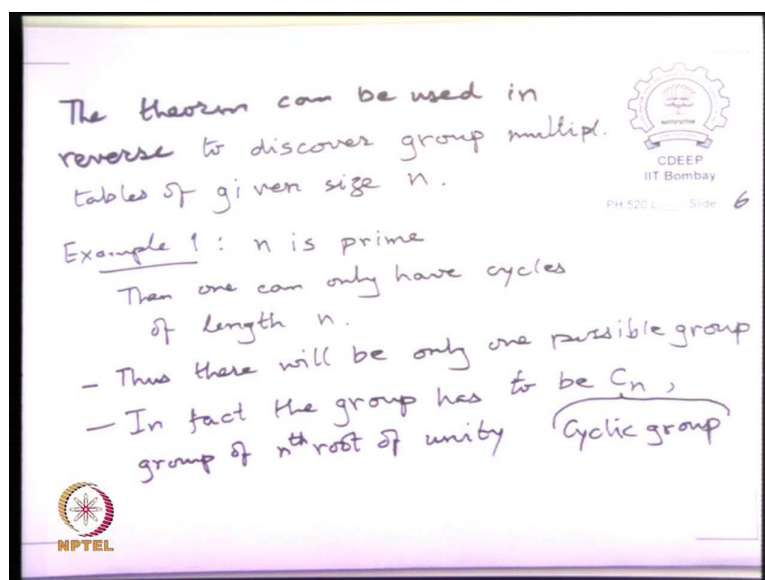 The theorem can be used in
reverse to discover group multipl.
tables of given size n.
CDEEP
IIT Bombay
PH 520 L Slide 6
Example 1 : n is prime
Then one can only have cycles
of length n.
- Thus there will be only one possible group
- In fact the group has to be Cn,
group of nth root of unity (Cyclic group)
NPTEL